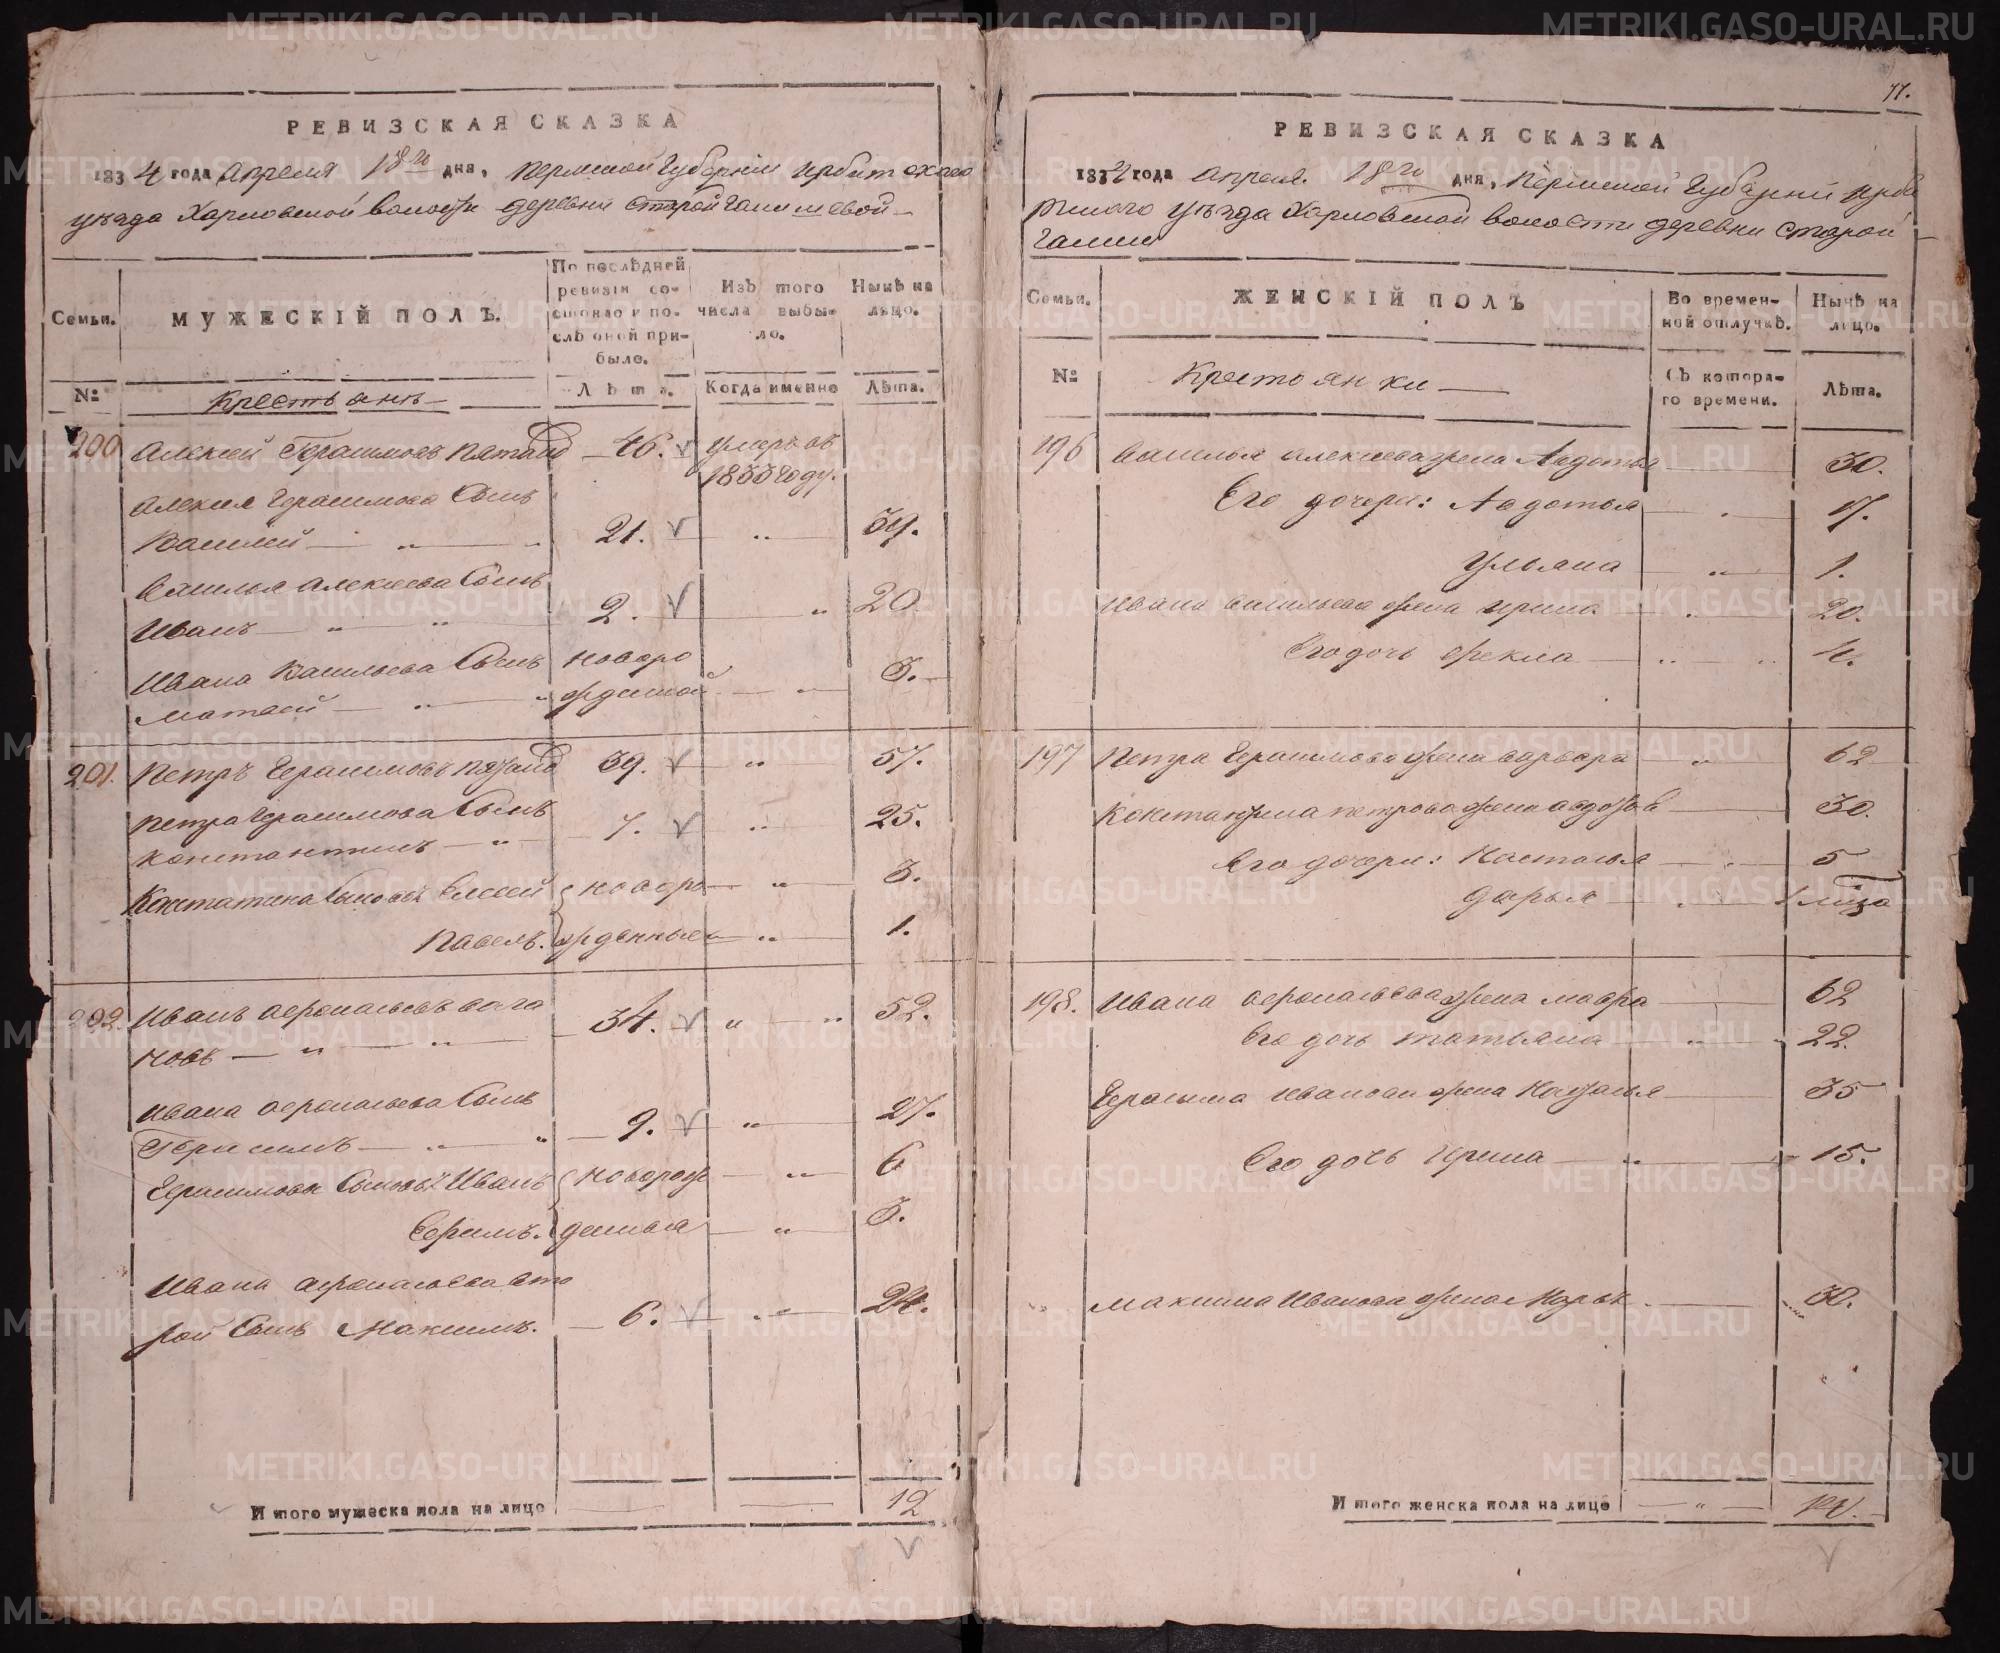 РЕВИЗСКАЯ СКАЗКА
1834 года Апреля 18го дня, Пермской Губернии Ирбитскаго
уезда Харловской волости деревни Старой
МУЖЕСКІЙ ПОЛЪ.
Семьи.
По послѣдней ревизіи состояло и послѣ оной прибыло.
Изъ того числа выбыло.
Нынѣ на лицо.
№
Крестьянъ
Лѣта.
Когда именно
Лѣта.
200 Алексей Герасимовъ — 46. умеръ въ
1833 году.
Алексея Герасимова Сынъ
Василей — „ — 21. „ 39.
Василья Алексеева Сынъ
Иванъ — „ „ 2. „ 20.
Ивана Васильева Сынъ новоро
Матвей — „ — жденной — „ 3.
201. Петръ Герасимовъ 39. „ 57.
Петра Герасимова Сынъ
Константинъ — „ — 7. „ 25.
Константина Сыновья Елисей новоро „ 3.
Павелъ. жденные „ 1.
202. Иванъ Аѳонасьевъ вага
новъ — „ — „ 34. „ „ 52.
Ивана Аѳонасьева Сынъ
Герасимъ — „ — „ 9. „ 27.
Герасимовы Сыновья Иванъ новорож „ 6
Ефимъ. денныя „ 3.
Ивана Аѳонасьева вто
рой Сынъ Максимъ. — 6. „ 24.
Итого мужеска пола на лицо 12
77.
РЕВИЗСКАЯ СКАЗКА
1834 года Апреля 18го дня, Пермской Губернии Ирби
тскаго уезда Харловской волости деревни Старой
Семьи.
ЖЕНСКІЙ ПОЛЪ
Во временной отлучкѣ.
Нынѣ на лицо.
№
Крестьянки
Съ котораго времени.
Лѣта.
196 Василья Алексеева жена Авдотья 30.
Его дочери: Авдотья „ 17.
Ульяна „ 1.
Ивана Васильева жена Ирина „ 20.
Его дочь Фекла „ „ 4.
197 Петра Герасимова жена Варвара „ 62
Константина Петрова жена Авдотья 30.
Его дочери: Настасья „ 5
Дарья „
198. Ивана Аѳонасьева жена Мавра 62
Его дочь Татьяна „ „ 22.
Герасима Иванова жена Наталья 35
Его дочь Ирина „ „ 15.
Максима Иванова жена Марья 30.
Итого женска пола на лицо „ 14.
METRIKI.GASO-URAL.RU